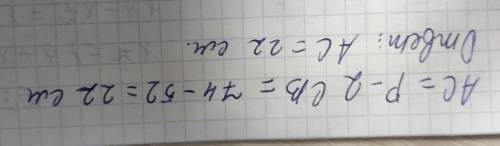 AC = P - 2CB = 74 - 52 = 22 см
Ответ: AC = 22 см.